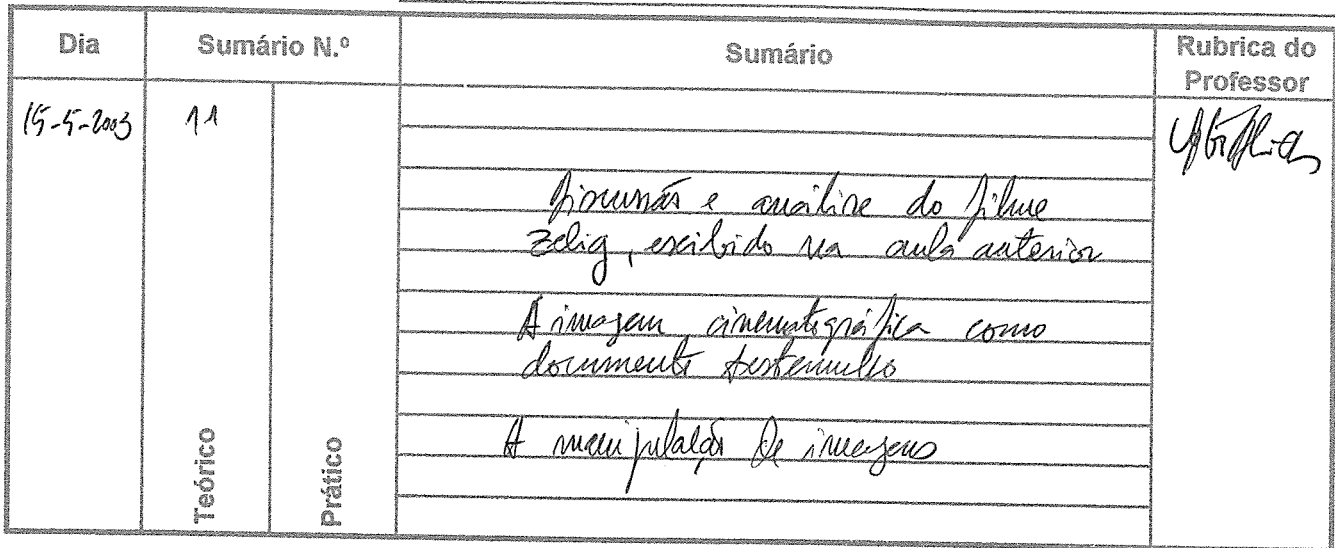 Dia
Sumário N.º
Sumário
Rubrica do
Professor
15-5-2003
11
Discussão e análise do filme
Zelig, exibido na aula anterior
A imagem cinematográfica como
documento testemunho
A manipulação de imagens
Teórico
Prático